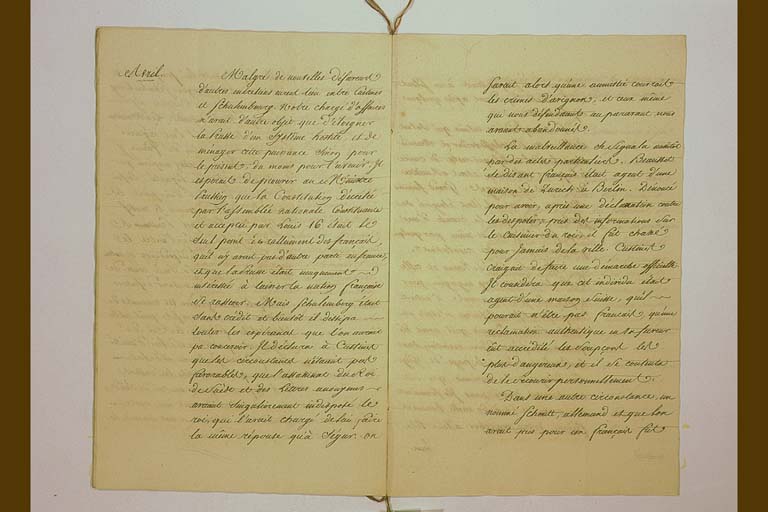 Avril.
Malgré de nouvelles défaveurs
d'autres entretiens eurent lieu entre Custine
et Schulembourg. Notre chargé d'affaires
n'avait d'autre objet que d'éloigner
la Prusse d'un Systême hostile, et de
ménager cette puissance Sinon pour
le présent, du moins pour l'avenir. Il
essayait de prouver au Ministre
que la Constitution décrétée
par l'assemblée nationale Constituante
et acceptée par Louis 16 était le
Seul point de ralliement des français,
qu'il n'y avait pas d'autre parti en france,
et que la Prusse était uniquement
intéressée à laisser la nation française
Se rasseoir. Mais Schulembourg était
Sans crédit et bientôt il dissipa
toutes les espérances que l'on avait
pu concevoir. Il déclara à Custine
que les circonstances n'étaient pas
favorables, que l'assassinat du Roi
de Suède et des Lettres anonymes
avaient Singulièrement indisposé le
roi, que l'avait chargé de lui faire
la même réponse qu'à Segur. on
Savait alors qu'une amnistie couvrait
les crimes d'avignon, et ceux même
qui nous défendaient auparavant nous
avaient abandonnés.
La malveillance se Signala aussitôt
par des actes particuliers.
Se disant français était agent d'une
maison de Zurich à Berlin. Dénoncé
pour avoir, après une déclamation contre
les despotes, pris des informations Sur
le Cuisinier du roi, il fut chassé
pour Jamais de la ville. Custine
craignit de faire une démarche officielle
Il considéra que cet individu était
agent d'une maison Suisse, qu'il
pouvait n'être pas français, qu'une
réclamation authentique en Sa faveur
eut accrédité les Soupçons les
plus dangereux, et il Se contenta
de le secourir personnellement.
Dans une autre circonstance, un
nommé Schmidt, allemand et que l'on
avait pris pour un français fut